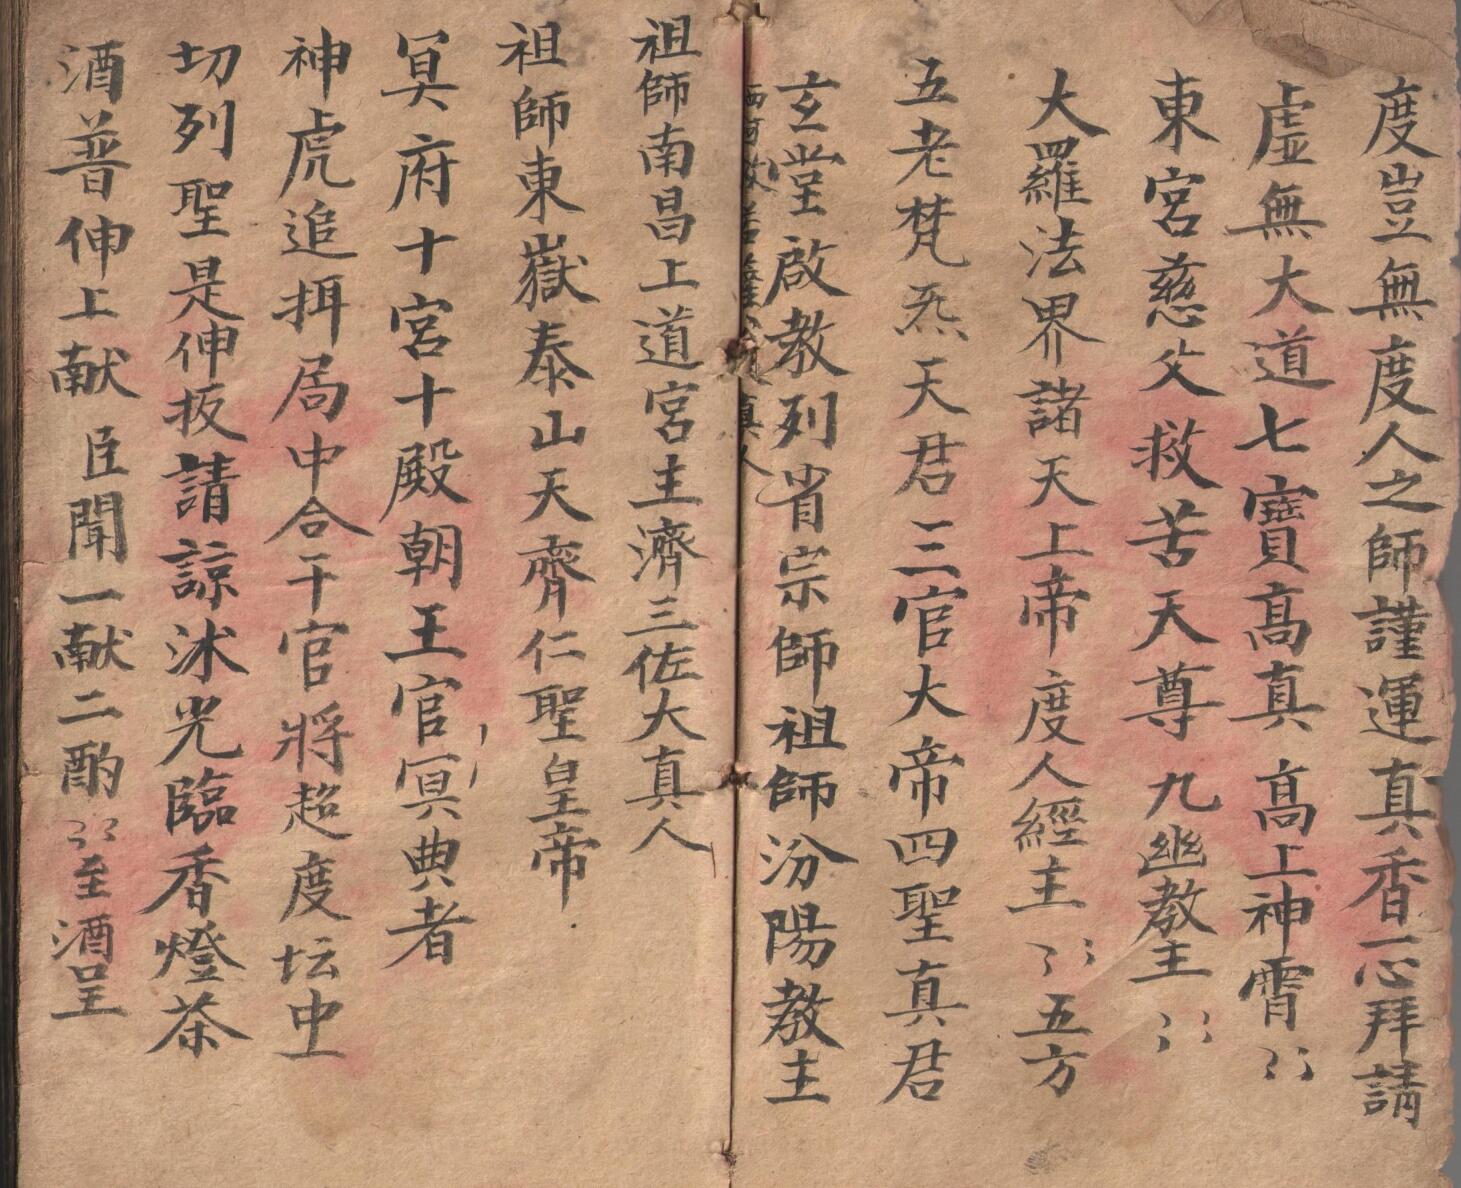 度豈無度人之師謹運真香一心拜請
虛無大道七寶髙真髙上神霄〻〻
東宮慈父救苦天尊九幽教主〻〻
大羅法界諸天上帝度人經主〻〻五方
五老梵炁天君三官大帝四聖真君
玄堂啟教列省宗師祖師汾陽教主
真人
祖師南昌上道宮主濟三佐大真人
祖師東嶽泰山天齊仁聖皇帝
冥府十宮十殿朝王官冥典者
神虎追挕局中合干官將超度坛中
切列聖是伸扳請諒沭光臨香燈茶
酒普伸上献臣聞一献二酌〻〻至酒呈